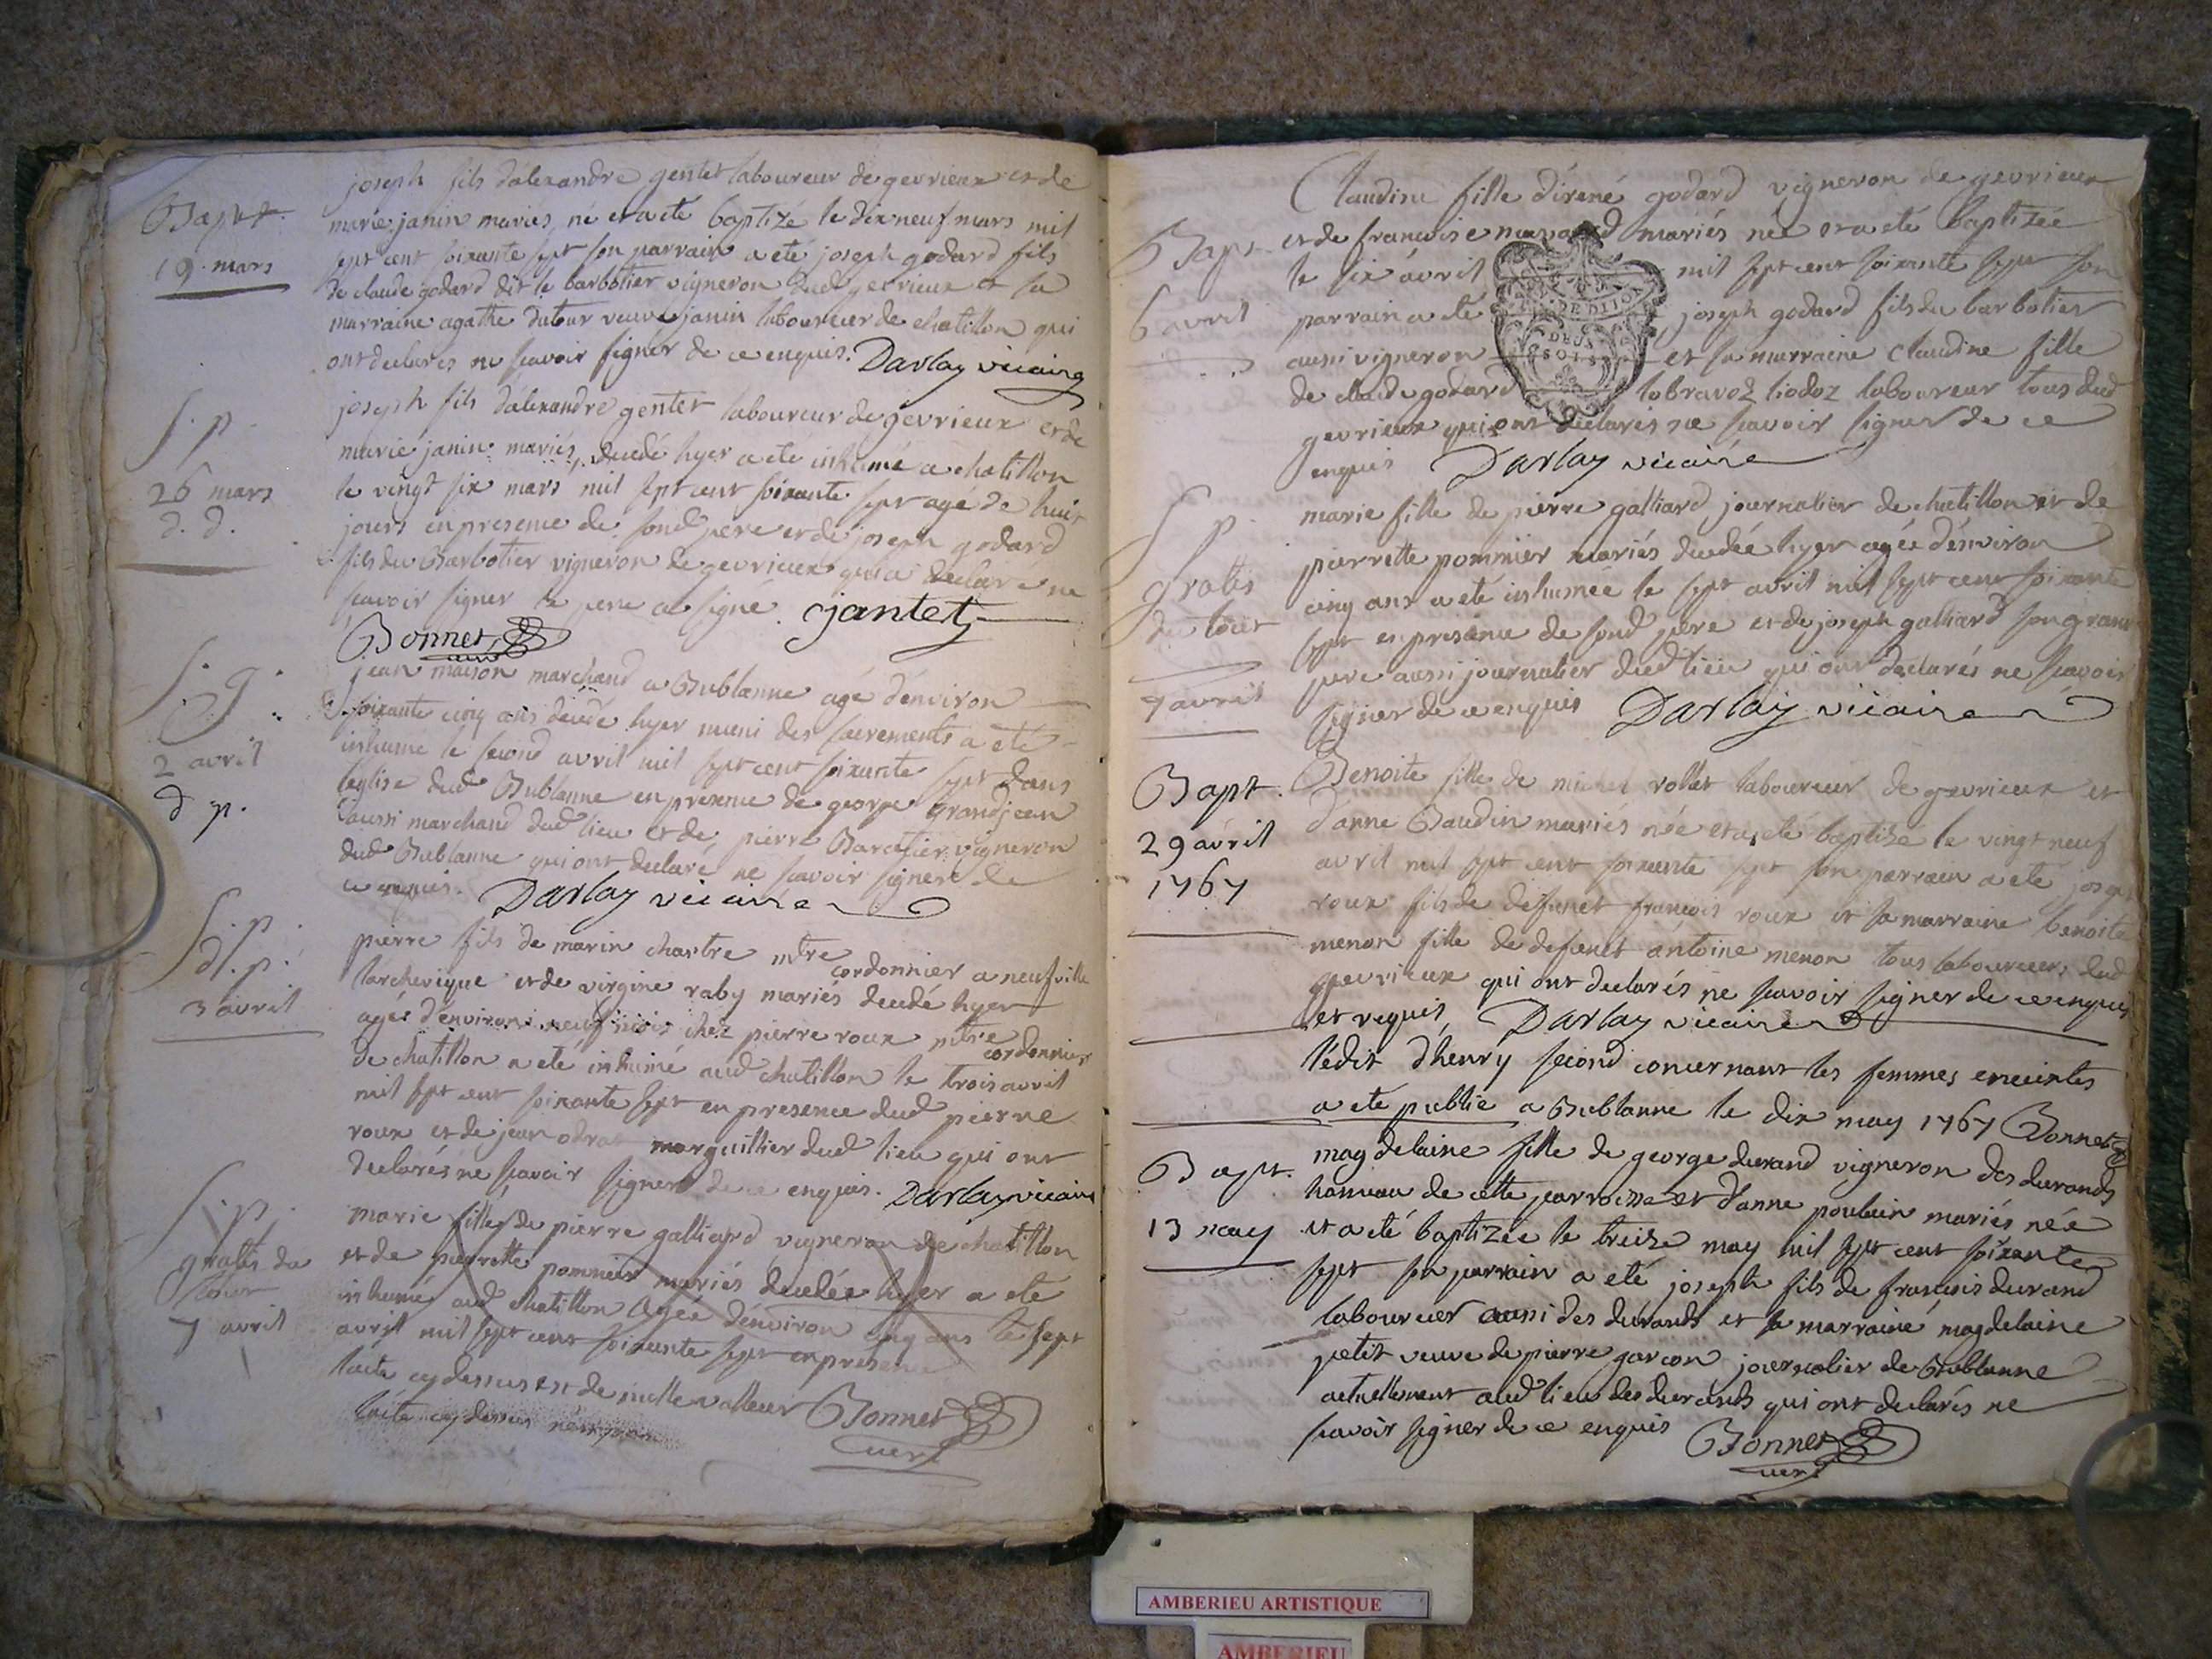 Bapt.
19 mars
joseph fils d'alexandre gentet laboureur de gevrieux et de
marie janin mariés, né et a eté baptizé le dix neuf mars mil
sept cent soixante sept son parrain a eté joseph godard fils
de claude godard dit le barbotier vigneron dud gevrieux et sa
marraine agathe dutour veuve janin laboureur de chatillon qui
ont declarés ne scavoir signer de ce enquis. Darlay vicaire
S. p.
26 mars
d. d.
joseph fils d'alexandre gentet laboureur de gevrieux et de
marie janin mariés, decedé hyer a ete inhumé a chatillon
le vingt six mars mil sept cent soixante sept agé de huit
jours en presence de sond pere et de joseph godard
fils du Barbotier vigneron de gevrieux qui a declaré ne
scavoir signer le pere a signé. jantet
Bonnet curé
S. g.
2 avril
d p.
jean maison marchand a Bublanne agé d'environ
soixante cinq ans decedé hyer muni des sacrements a eté
inhumé le second avril mil sept cent soixante sept dans
l'eglise dud Bublanne en presence de george grandjean
aussi marchand dud lieu et de pierre vigneron
dud Bublanne qui ont declaré ne scavoir signer de
ce enquis. Darlay vicaire
S. p.
d. p.
3 avril
pierre fils de marin chartre mtre cordonnier a neufville
larcheveque et de virgine raby mariés decedé hyer
agé d'environ neuf mois chez pierre roux mtre cordonnier
de chatillon a eté inhumé aud chatillon le trois avril
mil sept cent soixante sept en presence dud pierre
roux et de jean marguillier dud lieu qui ont
declarés ne scavoir signer de ce enquis. Darlay vicaire
S. p.
gratis du
tout
7 avril
marie fille de pierre galliard vigneron de chatillon
et de pierrette pommier mariés decedée hyer a eté
inhumé aud chatillon agée d'environ cinq ans le sept
avril mil sept cent soixante sept en presence
lacte cy dessus est de nulle valleur Bonnet
curé
lacte cy dessus
Bapt.
6 avril
Claudine fille d'irené godard vigneron de gevrieux
et de francoise mariés née et a eté baptizée
le six avril mil sept cent soixante sept son
parrain a eté joseph godard fils du barbotier
aussi vigneron et sa marraine claudine fille
de claude godard laboureur tous dud
gevrieux qui ont declarés ne scavoir signer de ce
enquis Darlay vicaire
DEUX
SOLS
S p.
gratis
du tout
7 avril
marie fille de pierre galliard journalier de chatillon et de
pierrette pommier mariés decedée hyer agée d'environ
cinq ans a eté inhumée le sept avril mil sept cent soixante
sept en presence de sond pere et de joseph galliard son grand
pere aussi journalier dud lieu qui ont declarés ne scavoir
signer de ce enquis Darlay vicaire
Bapt.
29 avril
1767
Benoite fille de michel rollet laboureur de gevrieux et
d'anne Baudin mariés née et a eté baptisé le vingt neuf
avril mil sept cent soixante sept son parrain a eté joseph
roux fils de defunct francois roux et sa marraine benoite
menon fille de defunct antoine menon tous laboureurs dud
gevrieux qui ont declarés ne scavoir signer de ce enquis
et requis Darlay vicaire
l'edit d'henry second concernant les femmes enceintes
a eté publié a Bublanne le dix may 1767 Bonnet
Bapt.
13 may
magdelaine fille de george durand vigneron des durands
hameau de cette parroisse et d'anne poulain mariés née
et a eté baptizée le treize may mil sept cent soixante
sept son parrain a eté joseph fils de francois durand
laboureur aussi des durands et sa marraine magdelaine
petit veuve de pierre garcon journalier de Bublanne
actuellement aud lieu des durands qui ont declarés ne
scavoir signer de ce enquis Bonnet
curé
AMBERIEU ARTISTIQUE
AMBERIEU